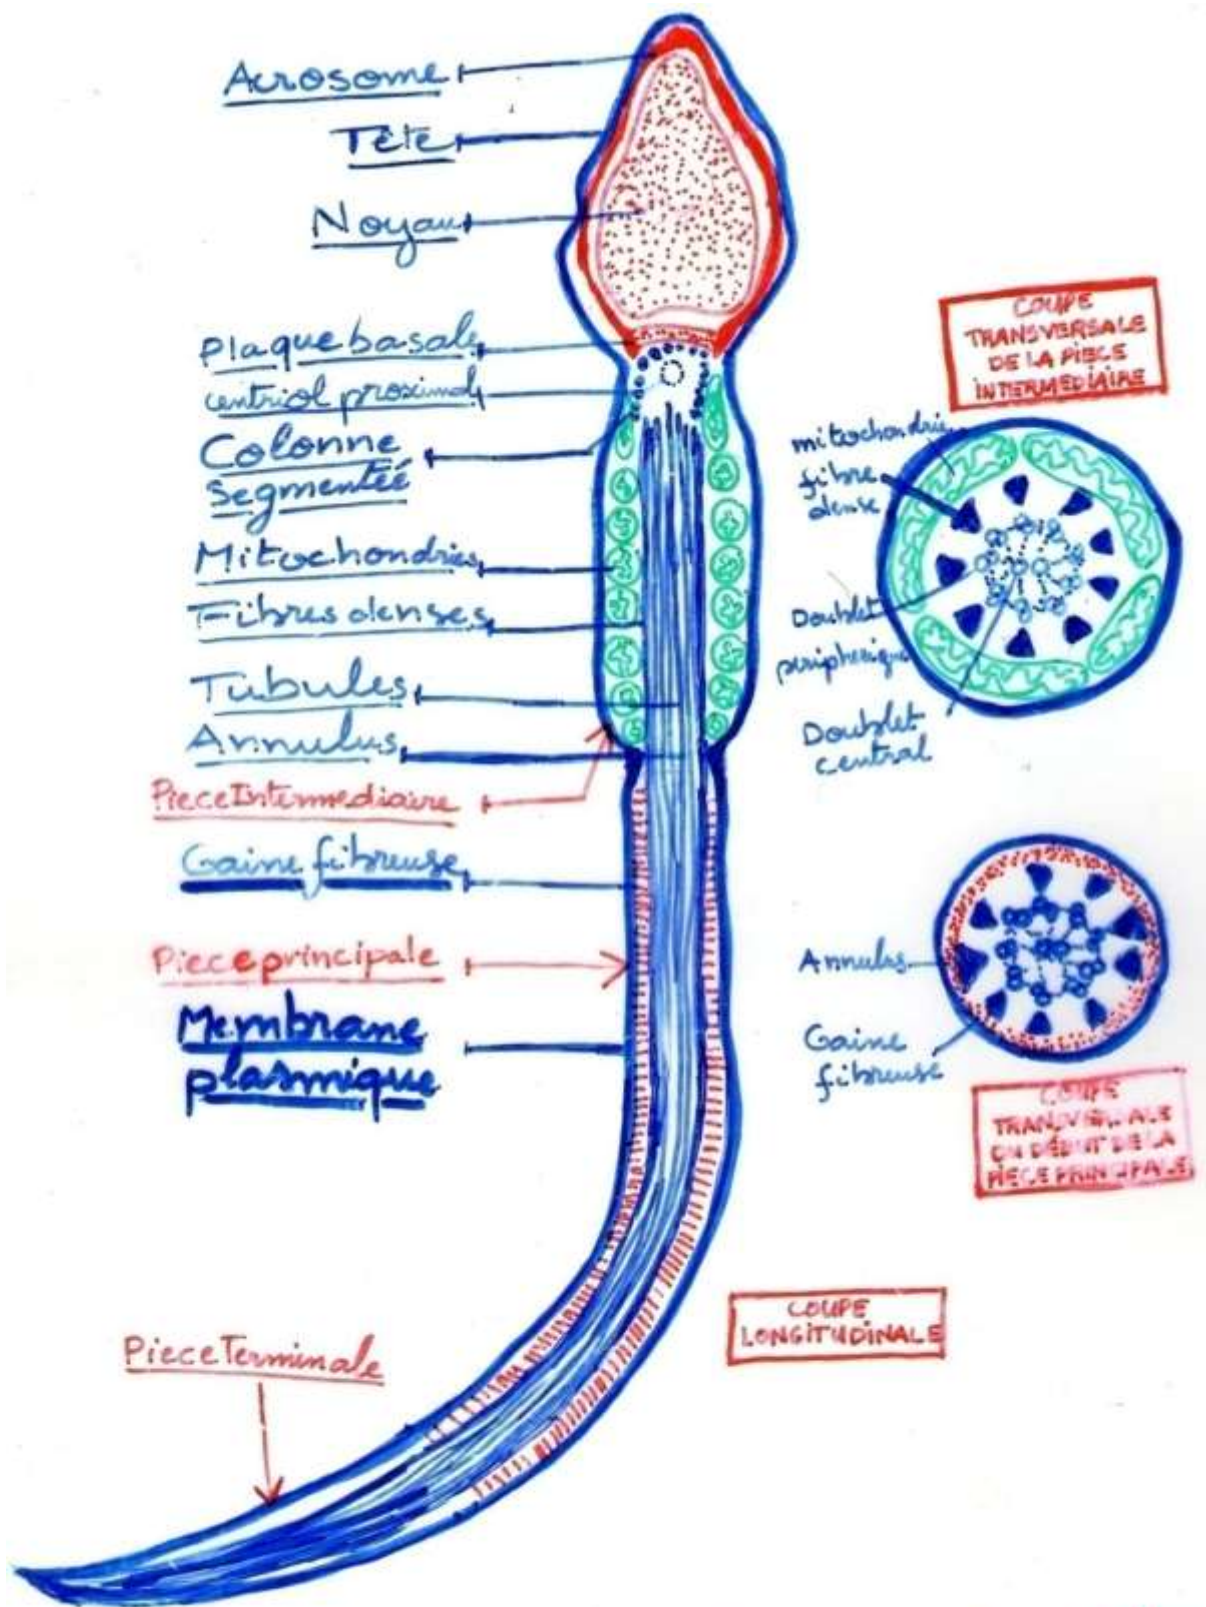 Acrosome
Tête
Noyau
Plaque basale
centriol proximal
Colonne
segmenteé
Mitochondries
Fibres denses
Tubules
Annulus
Piece Intermediaire
Gaine fibreuse
Piece principale
Membrane
plasmique
Piece Terminale
COUPE
TRANSVERSALE
DE LA PIECE
INTERMEDIAIRE
mitochondrie
fibre
dense
Doublet
peripherique
Doublet
central
Annulus
Gaine
fibreuse
COUPE
TRANSVERSALE
DU DÉBUT DE LA
PIECE PRINCIPALE
COUPE
LONGITUDINALE